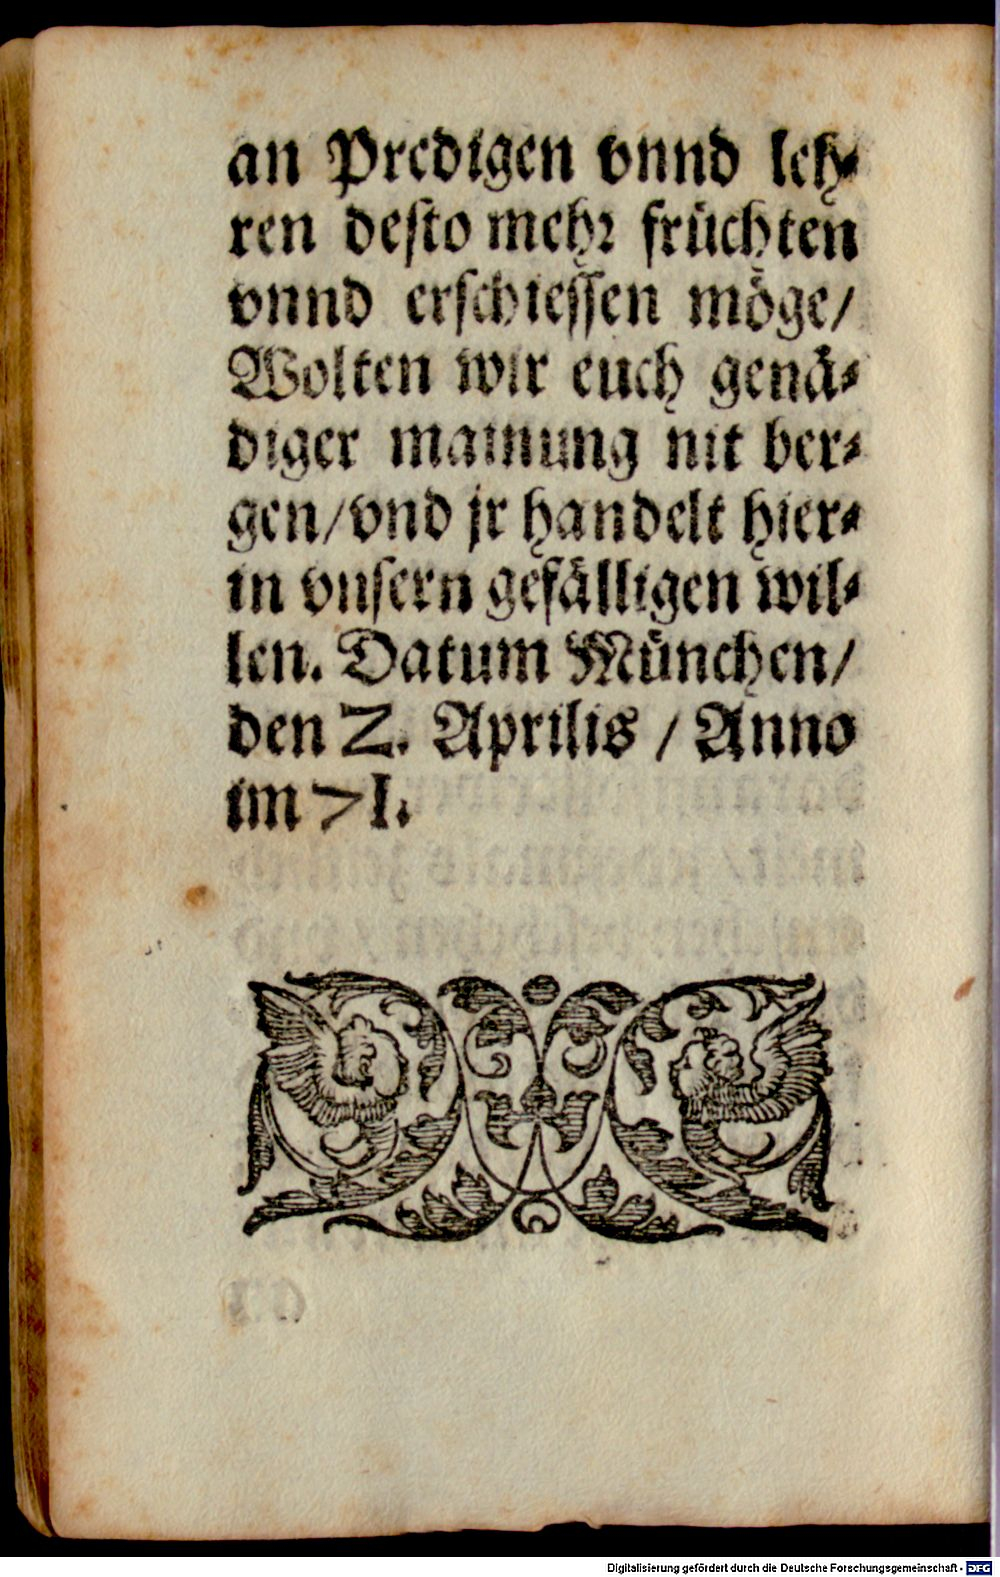 an Predigen vnnd leh⸗
ren desto mehr früchten
vnnd erschiessen möge/
Wolten wir euch genä⸗
diger mainung nit ber⸗
gen/vnd jr handelt hier⸗
in vnsern gefälligen wil⸗
len. Datum München/
den 2. Aprilis / Anno
im 71.
Digitalisierung gefördert durch die Deutsche Forschungsgemeinschaft - DFG